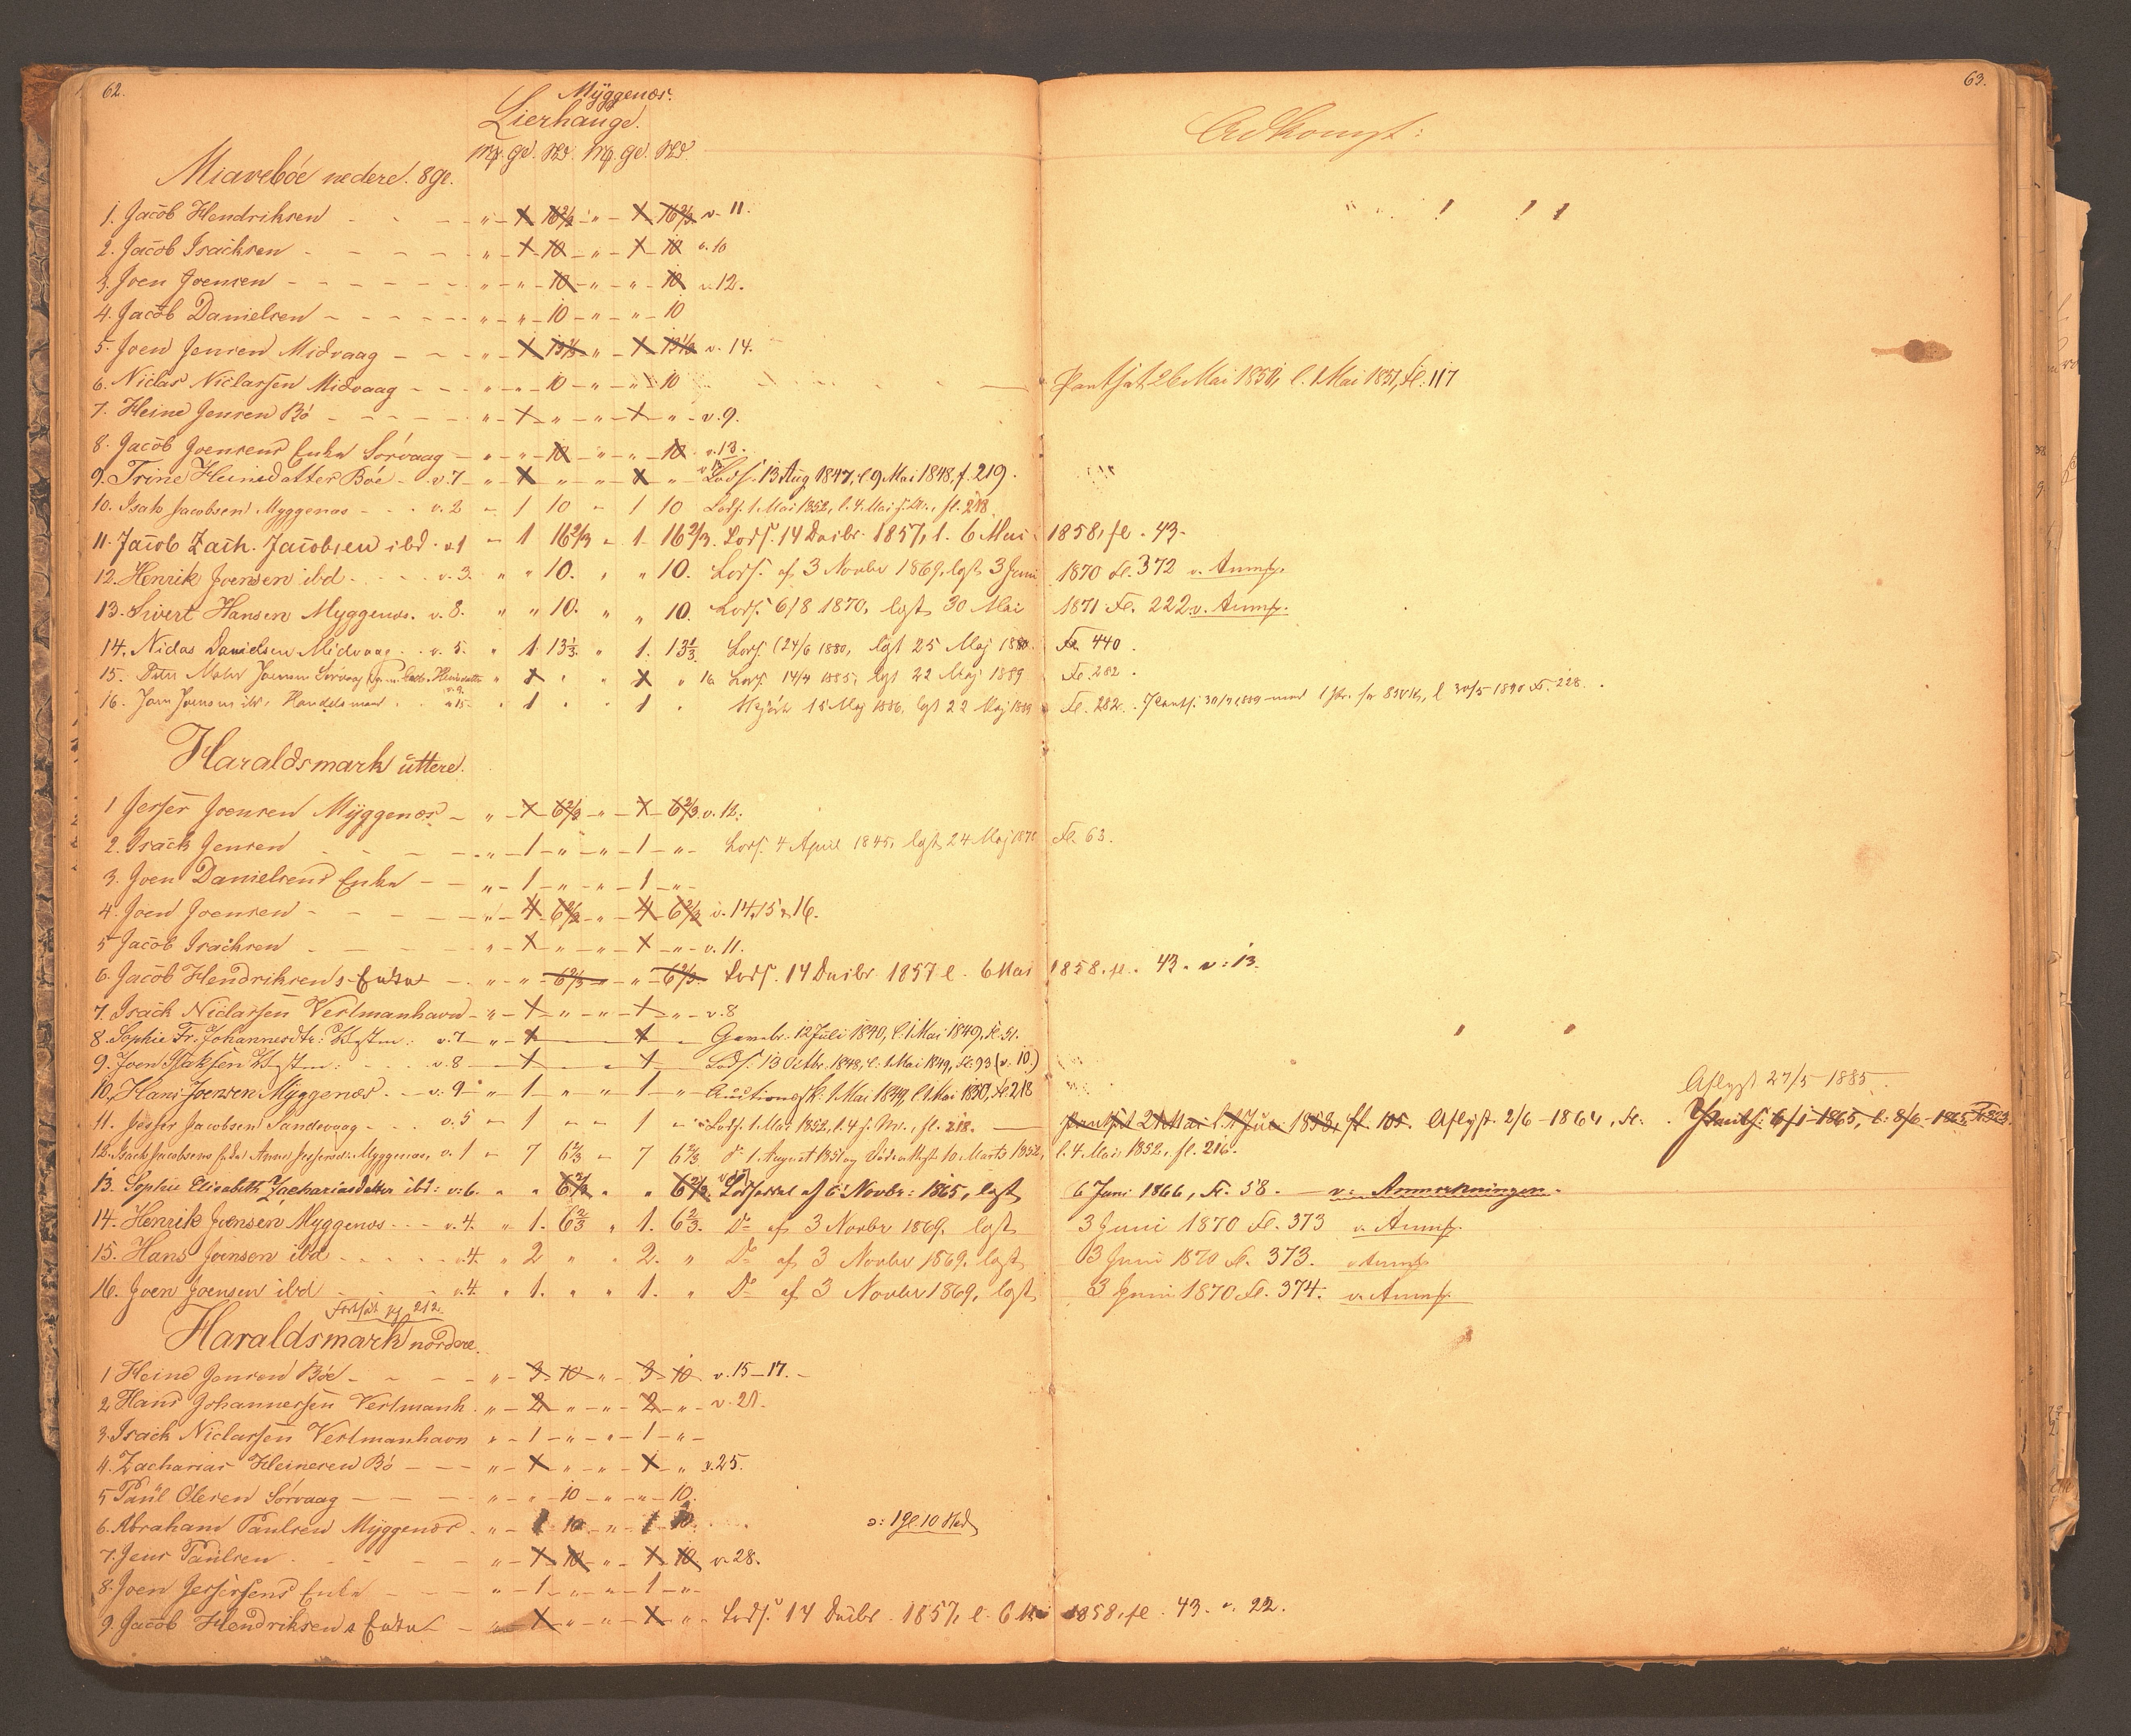 62.
63.
Myggenæs.
Lierhauge.
Adkomst:
Mk. gl. Skd. Mk. gl. Skd.
Miavebøe nedere. 8 gl.
1. Jacob Hendriksen - - - " - 1 16 2/3 - " - 1 16 2/3 v. 11.
2. Jacob Isacksen - - - - " - 1 - 10 - " - 1 - 10 v. 10
3. Joen Joensen - - - - - " - " - 10 - " - " - 10 v. 12.
4. Jacob Danielsen - - - - - " - " - 10 - " - " - 10
5. Joen Jensen Midvaag - - - " - 1 13 1/3 " - 1 13 1/3 v. 14.
6. Niclas Niclassen Midvaag - - - " - " - 10 - " - " - 10 Pantsat 26 Mai 1851, l. 1 Mai 1851, Fl: 117
7. Heine Jensen Bø - - - - - " - 1 - " - " - 1 - " - v. 9.
8. Jacob Joensens Enke Sørvaag - " - " - 10 - " - " - 10 v. 13.
9. Trine Heinesdatter Bøe - v. 7 - " 1 " " 1 " Lods. 13 Aug 1847, l. 9 Mai 1848, f. 219.
10. Isak Jacobsen Myggenæs - - - v. 2 - 1 10 - 1 10 Lods. 1 Mai 1852, l. 4 Mai s. A., fl. 218
11. Jacob Zach. Jacobsen ibd. v. 1 - 1 16 2/3 - 1 16 2/3. Lods. 14 Decbr. 1857, l. 6 Mai 1858, fl. 43.
12. Henrik Joensen ibd. - - - v. 3. " " 10. " " 10. Lods. af 3 Novbr 1869, lgst 3 Juni 1870 Fl. 372 v. Anmk.
13. Sivert Hansen Myggenæs. v. 8. " " 10. " " 10. Lods. 6/8 1870, lgst 30 Mai 1871 Fl. 222 v. Anmk.
14. Niclas Danielsen Midvaag. - v. 5. " 1. 13 1/3. " 1. 13 1/3. Lods. 24/6 1880, lgst 25 Maj 1880 Fl. 440.
15. Peter Mohr Joensen Sørvaag Heinesdatter v. 9. " 1 " " 1 " 16 Lods. 14/4 1885, lgst 22 Maj 1889 Fl. 282.
16. Joen Joensen ibd. Handelsmand - - v. 15 - " 1 " " 1 " 15 Maj 1886, lgst 22 Maj 1889 Fl. 282. Pants. 30/7 1889 med 1 Pr. for 850 Kr, l 30/5 1890 Fl. 228.
Haraldsmark uttere.
1 Jesser Joensen Myggenæs - " - 1 6 2/3 - " - 1 6 2/3 v. 12.
2. Isack Jensen - - - - " - 1 - " - " - 1 - " - Lods. 4 April 1845, lgst 24 Maj 1878 Fl. 63.
3. Joen Danielsens Enke - - " - 1 - " - " - 1 - " -
4. Joen Joensen - - - - " - 4 6 2/3 - " - 4 6 2/3 v. 14, 15 & 16.
5 Jacob Isacksen - - - - " - 1 - " - " - 1 - " - v. 11.
6. Jacob Hendriksens Enke - " - " - 6 2/3 - " - 6 2/3 Lods. 14 Decbr 1857 l. 6 Mai 1858, fl. 43. v: 13.
7. Isack Niclassen Vestmanhavn - " - 1 - " - " - 1 - " - v. 8
8. Sophie Fr. Johannesdtr: Vestm: v. 7 - " - 1 - - 1 - Gavebr. 12 Juli 1840, l. 1 Mai 1849, fl. 51.
9. Joen Isaksen Vestm: - - v. 8 - 1 - - 1 - Lods. 13 Octbr. 1848, l. 1 Mai 1849, Fl: 93 (v. 10.)
10. Hans Joensen Myggenæs. - - v. 9 - " - 1 - " " - 1 - " Auctionssk: 1 Mai 1849, l. 1 Mai 1850, Fl. 218
Aflyst 27/5 1885.
11. Jesper Jacobsen Sandevaag - - - v. 5 - 1 - - 1 - Lods. 1 Mai 1852, l. 4 s. M., fl. 218. Pantsat 21 Mai l. 1 Juni 1858, fl. 105. Aflyst. 2/6 - 1864, Fl: Pants: 6/1 - 1865, l: 8/6 - 1865 Fl 323
12. Isach Jacobsens Enke Anne Jespersdtr: Myggenæs, v. 1 - 7 6 2/3 - 7 6 2/3. do 1 August 1851 og Skiødeattest 10 Marts 1852, l. 4 Mai 1852, fl. 216.
13. Sophie Elisabeth Zachariasdatter ibd: v: 6. " " 6 2/3 " " 6 2/3. Lodseddel af 6 Novbr: 1865, lgst 6 Juni 1866, Fl. 58. - v: Anmærkningen.
14. Henrik Joensen Myggenæs - - - v. 4. " 1. 6 2/3 " 1. 6 2/3. Do af 3 Novbr 1869. lgst 3 Juni 1870 Fl. 373 v. Anmk.
15. Hans Joensen ibd - - - - v. 4. " 2 " " 2. " Do af 3 Novbr 1869. lgst 3 Juni 1870 Fl. 373. v. Anmk.
16. Joen Joensen ibd - - v. 4. " 1. " " 1. " Do af 3 Novbr 1869, lgst 3 Juni 1870 Fl. 374. v. Anmk.
Fortsat pg. 212.
Haraldsmark nordere.
1 Heine Jensen Bøe - - - - " - 3 10 " - 3 10 v. 15 - 17. -
2 Hans Johannessen Vestmanh. " - 2 - " - " - 2 - " - v. 21.
3. Isack Niclassen Vestmanhavn " - 1 - " - " - 1 - " -
4. Zacharias Heinesen Bø - - - " - 1 - " - " - 1 - " v. 25.
5 Paul Olesen Sørvaag - - - - " - " - 10 - " - " - 10.
6. Abraham Paulsen Myggenæs. " - 1 10 - " - 1 10. ɔ: 1 gl 10 Skd
7. Jens Paulsen - - - - " - 1 10 - " - 1 10 v. 28.
8. Joen Jessersens Enke - - - " - 1 - " - " - 1 - " -
9. Jacob Hendriksens Enke - - 1 - " - " - 1 " - Lods. 14 Decbr. 1857, l. 6 Mai 1858, fl. 43. v. 22.